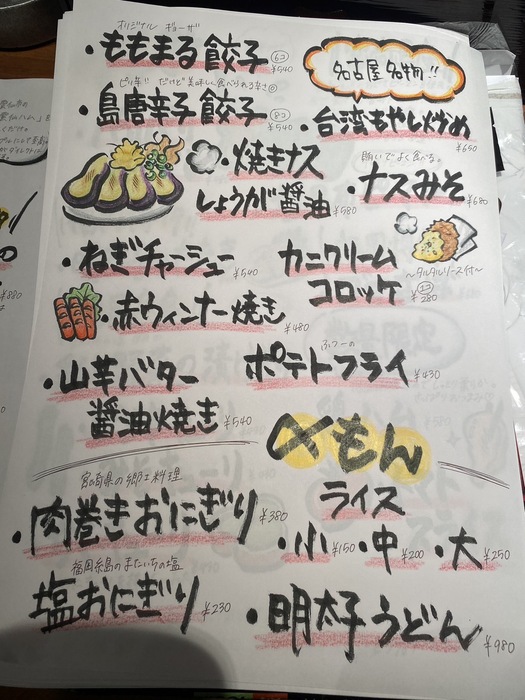 オリジナル ギョーザ
・ももまる餃子 6コ ¥540
名古屋名物!!
ピリ辛 だけど美味しく食べられる辛さ
・島唐辛子餃子 8コ ¥540
・台湾もやし炒め ¥650
・焼きナス
しょうが醤油 ¥580
よく食べる。
・ナスみそ ¥680
・ねぎチャーシュー ¥540
カニクリーム
コロッケ 1コ ¥280
〜タルタルソース付〜
・赤ウィンナー焼き ¥480
・山芋バター
醤油焼き ¥540
ふつーの
ポテトフライ ¥430
〆もん
宮崎県の郷土料理
・肉巻きおにぎり ¥380
ライス
・小 ¥150 ・中 ¥200 ・大 ¥250
福岡糸島のまたいちの塩
塩おにぎり ¥230
・明太子うどん ¥980
¥880